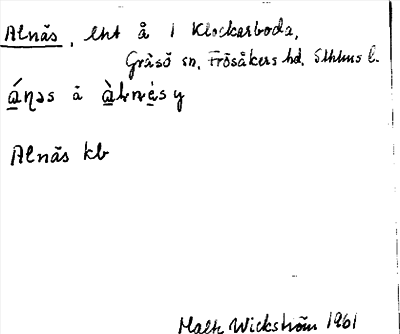 Alnäs, lht å 1 Klockarboda,
Gräsö sn, Frösåkers hd, Sthlms l.
Alnäs kb
Malte Wickström 1961